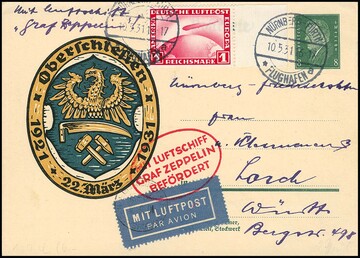 Mit Luftschiff
"Graf Zeppelin"
DEUTSCHE LUFTPOST
EUROPA
1 REICHSMARK 1
10.5.31
17
NÜRNBERG-FÜRTH
10.5.31
FLUGHAFEN
8
Oberschlesien
1921
1931
22. März
LUFTSCHIFF
GRAF ZEPPELIN
BEFÖRDERT
MIT LUFTPOST
PAR AVION
Nürnberg
Frau
Lorch
Württ
Bergstr. 498
Stockwerk